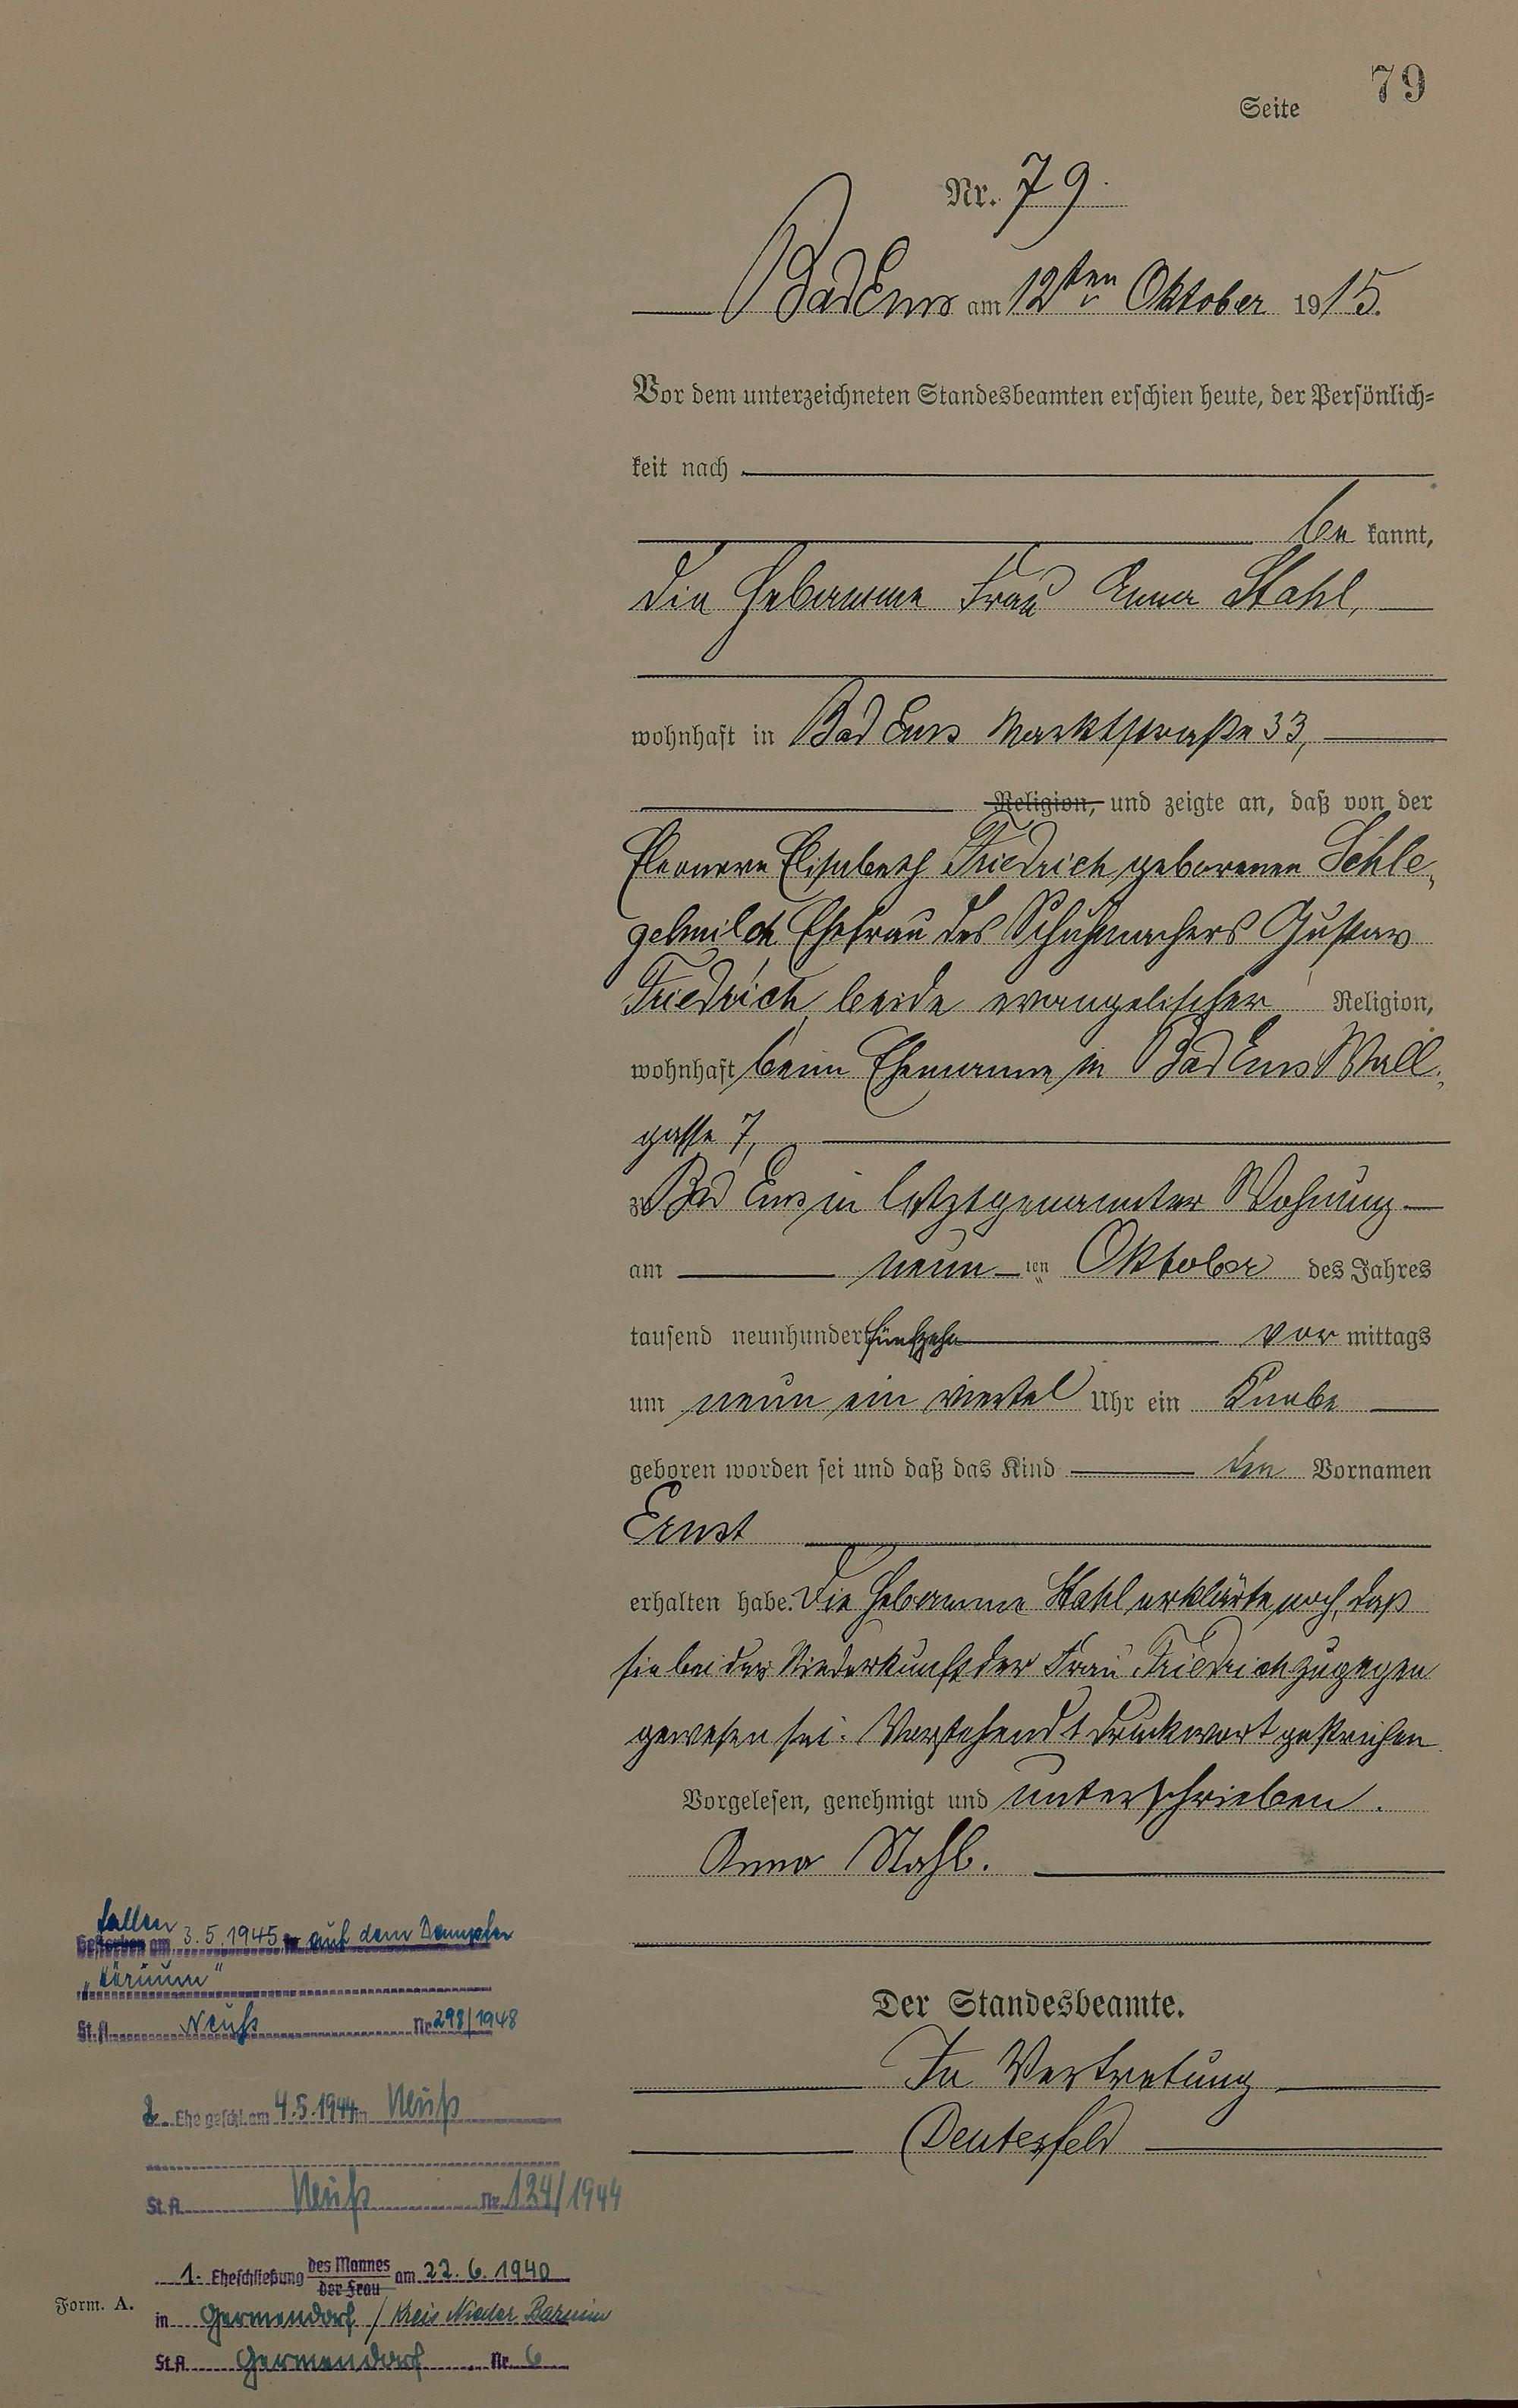 Seite 79
Nr. 79.
Bad Ems am 12ten Oktober 1915.
Vor dem unterzeichneten Standesbeamten erschien heute, der Persönlich=
keit nach
be kannt,
die Hebamme Frau Anna Stahl,
wohnhaft in Bad Ems Marktstraße 33,
Religion, und zeigte an, daß von der
Eleonore Elisabeth Friedrich geborenen Schle-
gelmilch, Ehefrau des Schuhmachers Gustav
Friedrich, beide evangelischer Religion,
wohnhaft beim Ehemanne in Bad Ems Wall-
gasse 7,
zu Bad Ems in letztgenannter Wohnung
am neun ten Oktober des Jahres
tausend neunhundert fünfzehn vor mittags
um neun ein viertel Uhr ein Knabe
geboren worden sei und daß das Kind den Vornamen
Ernst
erhalten habe. Die Hebamme Stahl erklärte noch, daß
sie bei der Niederkunft der Frau Friedrich zugegen
gewesen sei. Vorstehend 1 Druckwort gestrichen.
Vorgelesen, genehmigt und unterschrieben.
Anna Stahl.
Der Standesbeamte.
In Vertretung
Deutesfeld
fallen
Gestorben am 3.5.1945 auf dem Dampfer
St.A. Neuß Nr. 298/1948
2. Ehe geschl. am 4.5.1944 in Neuß
St.A. Neuß Nr. 124/1944
1. Eheschließung des Mannes am 22.6.1940
der Frau
in Germendorf / Kreis Nieder Barnim
St.A. Germendorf Nr. 6
Form. A.